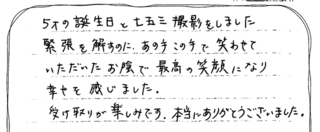 5才の誕生日と七五三撮影をしました
緊張を解すのに、あの手この手で笑わせて
いただいたお陰で最高の笑顔になり
幸せを感じました。
受け取りが楽しみです、本当にありがとうございました。